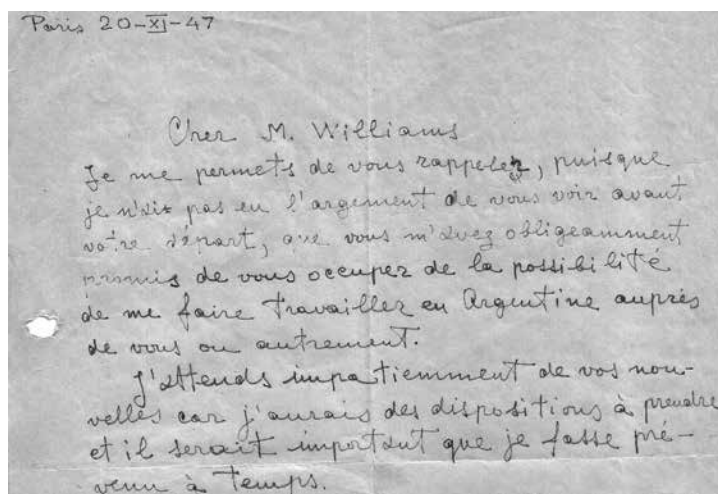 Paris 20-XI-47
Cher M. Williams
Je me permets de vous rappeler, puisque
je n'ais pas eu l'argement de vous voir avant
votre départ, que vous m'avez obligeamment
promis de vous occuper de la possibilité
de me faire travailler en Argentine auprès
de vous ou autrement.
J'attends impatiemment de vos nou-
velles car j'aurais des dispositions à prendre
et il serait important que je fasse pré-
venu à temps.